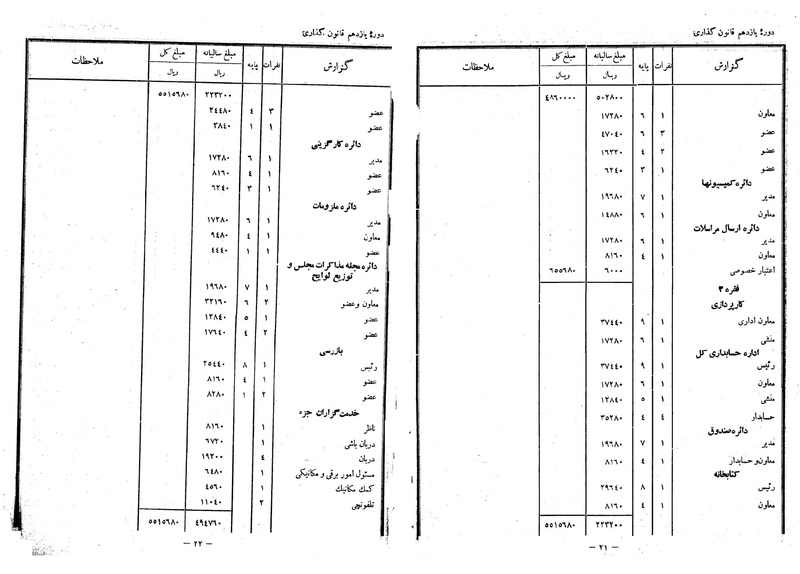 دورهٔ یازدهم قانون گذاری
گزارش نفرات پایه مبلغ سالیانه مبلغ کل ملاحظات
ریال ریال
۵۰۲۸۰۰ ۴۸۶۰۰۰۰
معاون ۱ ۶ ۱۷۲۸۰
عضو ۳ ۶ ۴۷۰۴۰
عضو ۲ ۴ ۱۶۳۲۰
عضو ۱ ۳ ۶۲۴۰
دائره کمیسیونها
مدیر ۱ ۷ ۱۹۶۸۰
معاون ۱ ۶ ۱۴۸۸۰
دائره ارسال مراسلات
مدیر ۱ ۶ ۱۷۲۸۰
معاون ۱ ۴ ۸۱۶۰
اعتبار خصوصی ۶۰۰۰ ۶۵۵۶۸۰
فقره ۳
کارپردازی
معاون اداری ۱ ۹ ۳۷۴۴۰
منشی ۱ ۶ ۱۷۲۸۰
اداره حسابداری کل
رئیس ۱ ۹ ۳۷۴۴۰
معاون ۱ ۶ ۱۷۲۸۰
منشی ۱ ۵ ۱۲۸۴۰
حسابدار ۴ ۴ ۳۵۲۸۰
دائره صندوق
مدیر ۱ ۷ ۱۹۶۸۰
معاون و حسابدار ۱ ۴ ۸۱۶۰
کتابخانه
رئیس ۱ ۸ ۲۹۶۴۰
معاون ۱ ۴ ۸۱۶۰
۲۲۳۲۰۰ ۵۵۱۵۶۸۰
— ۲۱ —
دورهٔ یازدهم قانون گذاری
گزارش نفرات پایه مبلغ سالیانه مبلغ کل ملاحظات
ریال ریال
۲۲۳۲۰۰ ۵۵۱۵۶۸۰
عضو ۳ ۴ ۲۴۴۸۰
عضو ۱ ۱ ۳۸۴۰
دائره کارگزینی
مدیر ۱ ۶ ۱۷۲۸۰
عضو ۱ ۴ ۸۱۶۰
عضو ۱ ۳ ۶۲۴۰
دائره ملزومات
مدیر ۱ ۶ ۱۷۲۸۰
معاون ۱ ۴ ۹۴۸۰
عضو ۱ ۱ ۴۴۴۰
دائره مجله مذاکرات مجلس و
توزیع لوایح
مدیر ۱ ۷ ۱۹۶۸۰
معاون و عضو ۲ ۶ ۳۲۱۶۰
عضو ۱ ۵ ۱۲۸۴۰
عضو ۲ ۴ ۱۷۶۴۰
بازرسی
رئیس ۱ ۸ ۲۵۴۴۰
عضو ۱ ۴ ۸۱۶۰
عضو ۲ ۱ ۸۲۸۰
خدمت گزاران جزء
ناظر ۱ ۸۱۶۰
دربان باشی ۱ ۶۷۲۰
دربان ۴ ۱۹۲۰۰
مسئول امور برقی و مکانیکی ۱ ۶۴۸۰
کمک مکانیک ۱ ۴۵۶۰
تلفونچی ۲ ۱۱۰۴۰
۴۹۴۷۶۰ ۵۵۱۵۶۸۰
— ۲۲ —